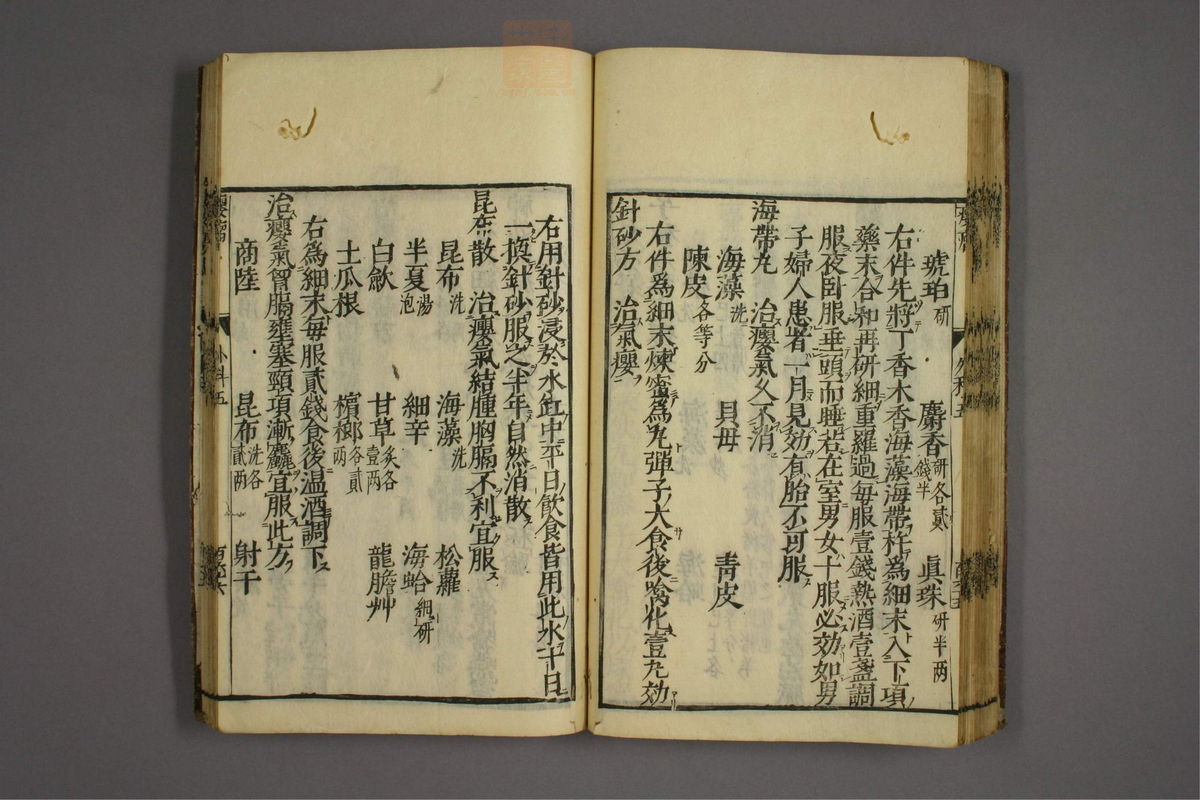 琥珀研 麝香研各貳錢半 眞珠研半兩
右件先將丁香木香海藻海帶杵爲細末入下項
藥末合和再研細重羅過每服壹錢熱酒壹盞調
服夜卧服垂頭而睡若在室男女十服必効如男
子婦人患者一月見効有胎不可服
海帶丸 治癭氣久不消
海藻洗 貝母 青皮
陳皮各等分
右件爲細末煉蜜爲丸彈子大食後噙化壹丸効
針砂方 治氣癭
右用針砂浸於水缸中平日飲食皆用此水十日
一換針砂服之半年自然消散
昆布散 治癭氣結腫胸膈不利宜服
昆布洗 海藻洗 松蘿
半夏湯泡 細辛 海蛤細研
白斂 甘草炙各壹两 龍膽艸
土瓜根 檳榔各貳两
右爲細末每服貳錢食後温酒調下
治癭氣曾膈壅塞頸項漸麤宜服此方
商陸 昆布洗各貳两 射干